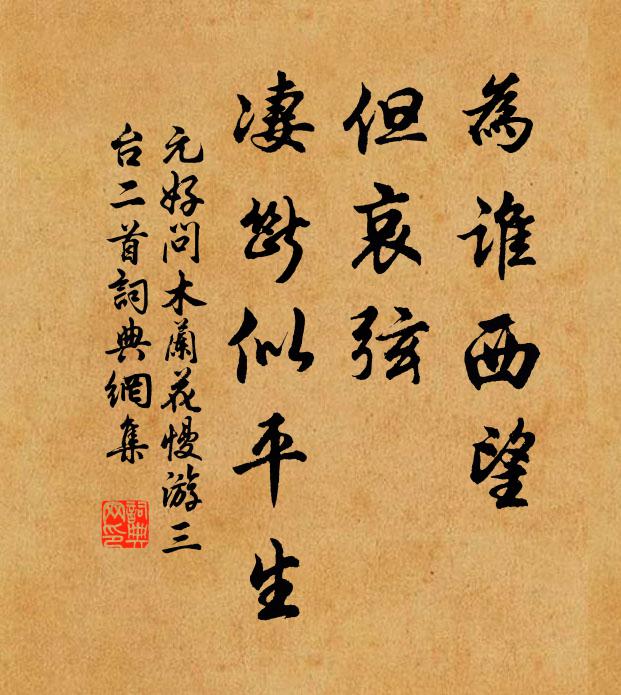 為誰西望
但哀弦
凄斷似平生
元好問木蘭花慢游三
台二首詞典網集
詞典网印